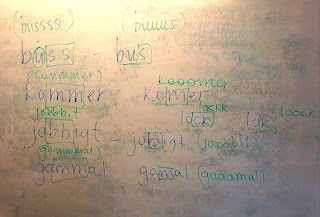 (bussss) (buuuus)
buss - bus
(kommmer) kooomer
kommer komer
jobbbit lockk loook
lock lok
jobbigt - jobigt (jooobit)
gammmal
gammal gamal (gaaamal)